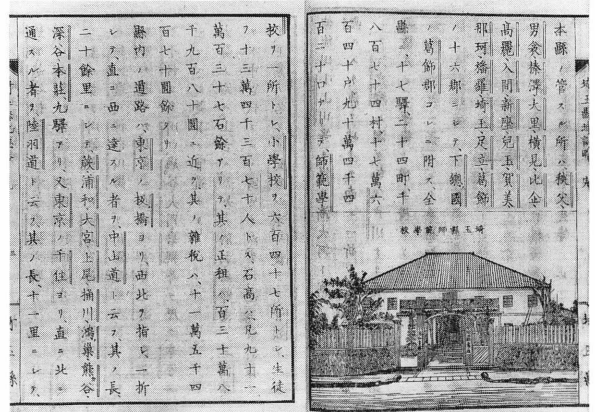 本縣ノ管スル所ハ秩父
男衾榛澤大里横見比企
高麗入間新座兒玉賀美
那珂幡羅埼玉足立葛飾
ノ十六郡ニシテ、下總國
葛飾郡コレニ附ス全
縣三十七驛二十四町千
八百七十四村十七萬六
百四十戸九十萬四千四
百二十口ナリ、師範學
埼玉縣師範學校
校ヲ一所トシ、小學校ヲ六百四十七所トシ、生徒
ヲ十三萬四千三百七十人トス石高ハ、凡九十一
萬百三十七石餘アリテ其ノ正租ハ、百三十萬八
千九百八十圓ニ近ク其ノ雜税ハ、十一萬五千四
百七十圓餘ナリ
縣内ノ道路ハ、東京ノ板橋ヨリ、西北ヲ指シ、一折
シテ、直ニ西ニ達スル者ヲ、中山道ト云フ其ノ長
二十餘里ニシテ、蕨浦和大宮上尾桶川鴻巣熊谷
深谷本莊九驛アリ又東京ノ千住ヨリ、直ニ北ニ
通スル者ヲ、陸羽道ト云フ其ノ長、十一里ニシテ、